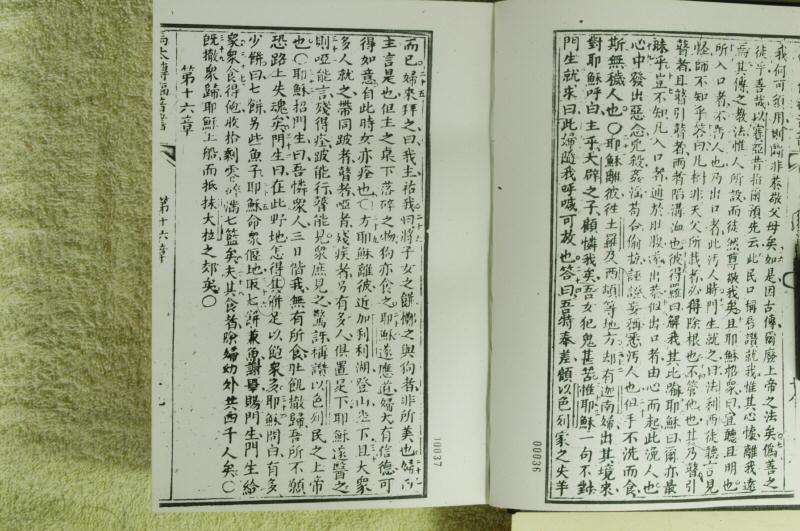 我何可須用則斷非恭敬父母矣如是因古傳爾廢上帝之法矣偽善之
徒乎善哉以賽亞昔指爾預先云此民口稱唇讚就我惟其心懷離我遠
焉其傳之教法惟人所設而徒然尊敬我矣且耶穌招眾曰宜聽且明也
所入口者不污人也乃出口者此污人時門生就之曰法利西徒聽言見
怪師不知乎答曰凡樹非天父所栽者必得除根也不管他也其乃瞽引
瞽者且瞽引瞽者兩者陷溝洫也彼得羅曰解我其比喻耶穌曰爾亦最
昧乎豈不知凡入口者通於肚腹瀉出恭但出口者由心而起此浼人也
心中發出惡念兇殺姦淫苟合偷掠誣證妄稱悉污人也但手不洗而食
斯無穢人也〇耶穌離彼往土羅及西頓等地方却有迦南婦出其境來
對耶穌呼曰主乎大辟之子顧憐我矣吾女犯鬼甚苦惟耶穌一句不對
門生就求曰此婦隨我呼喊可放也答曰吾特奉差顧以色列家之失羊
00036
而已婦來拜之曰我主祐我曰將子女之餅擲之與狗者非所美也婦曰
主言是也但主之桌下落碎之物狗亦食之耶穌遂應道婦大有信德可
得如意自此時女亦痊也〇方耶穌離彼近加利利湖登山坐下且大眾
多人就之帶同跛者瞽者啞者殘疾者另有多人俱置足下耶穌遂醫之
則啞能言殘得痊跛能行瞽能見眾庶見之驚訝稱讚以色列民之上帝
也〇耶穌招門生曰吾憐眾人三日偕我無有所食肚飢撤歸吾所不願
恐路上失魂矣門生曰在此野地怎得其餅足以飽眾多耶穌問曰有多
少餅曰七餅另些魚子耶穌命眾偃地取七餅兼魚謝畢賜門生門生給
眾眾食得飽收拾剩零碎滿七籃矣夫其食者除婦幼外共四千人矣〇
既撤眾歸耶穌上船而抵抹大拉之郊矣〇
第十六章
馬太傳福音書 第十六章
10037